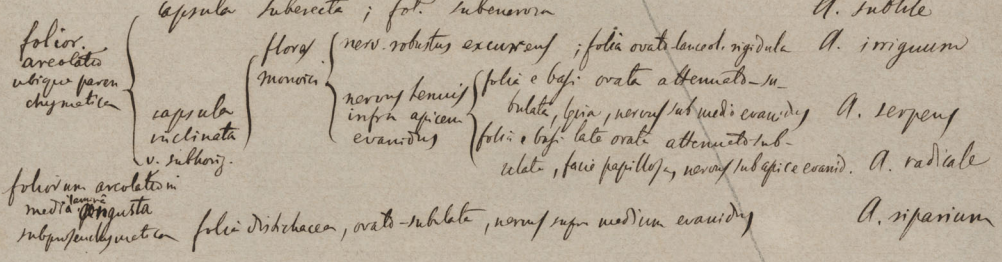 capsula suberecta ; fol. subenervia A. subtile
folior. areolatio ubique parenchymatica
flores monoici
nerv. robustus excurrens ; folia ovato-lanceol. rigidula A. irriguum
capsula inclinata v. subhoriz.
nervus tenuis infra apicem evanidus
folia e basi ovata attenuato-su-
bulata, lævia, nervus sub medio evanidus A. serpens
folia e basi late ovata attenuato sub-
ulata, facie papillosa, nervus sub apice evanid. A. radicale
foliorum areolatio in
media lamina angusta
subprosenchymatica folia distichacea, ovato-subulata, nervus supra medium evanidus A. riparium